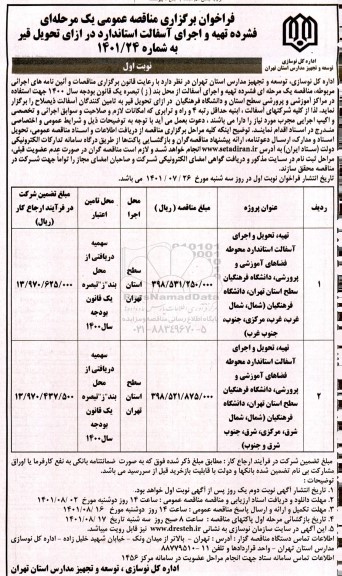 فراخوان برگزاری مناقصه عمومی یک مرحله‌ای
فشرده تهیه و اجرای آسفالت استاندارد در ازای تحویل قیر
به شماره ۱۴۰۱/۲۴
اداره کل نوسازی
توسعه و تجهیز مدارس استان تهران
نوبت اول
اداره کل نوسازی، توسعه و تجهیز مدارس استان تهران در نظر دارد با رعایت قانون برگزاری مناقصات و آئین نامه های اجرائی
مربوطه، مناقصه یک مرحله ای فشرده تهیه و اجرای آسفالت از محل بند ( ز ) تبصره یک قانون بودجه سال ۱۴۰۰ جهت استفاده
در مراکز آموزشی و پرورشی سطح استان و دانشگاه فرهنگیان در ازای تحویل قیر به تامین کنندگان آسفالت ذیصلاح را برگزار
نماید. لذا از کلیه شرکتهای آسفالت، ابنیه حداقل رتبه ۴ و راه و ترابری که امکانات لازم و صلاحیت و سوابق اجرائی و تخصصی
و اکیپ اجرایی مجرب مورد نیاز را دارا می باشند، دعوت بعمل می آید با توجه به توضیحات ذیل و شرایط عمومی و اختصاصی
مندرج در اسناد اقدام نمایند. توضیح اینکه کلیه مراحل برگزاری مناقصه از دریافت اطلاعات و اسناد مناقصه عمومی، تحویل
اسناد و مدارک، ارسال دعوتنامه، ارائه پیشنهاد مناقصه‌گران و بازگشایی پاکت‌ها از طریق درگاه سامانه تدارکات الکترونیکی
دولت (ستاد ایران) به آدرس www.setadiran.ir انجام خواهد شد و لازم است مناقصه گران در صورت عدم عضویت قبلی،
مراحل ثبت نام در سایت مذکور و دریافت گواهی امضای الکترونیکی شرکت و صاحبان امضای مجاز را تواماً جهت شرکت در
مناقصه محقق سازند.
تاریخ انتشار فراخوان نوبت اول در روز سه شنبه مورخ ۲۶ / ۰۷ / ۱۴۰۱ می باشد.
ردیف
عنوان پروژه
مبلغ مناقصه ( ریال )
محل اجرا
محل تامین اعتبار
مبلغ تضمین شرکت در فرآیند ارجاع کار (ریال)
۱
تهیه، تحویل و اجرای
آسفالت استاندارد محوطه
فضاهای آموزشی و
پرورشی، دانشگاه فرهنگیان
سطح استان تهران، دانشگاه
فرهنگیان (شمال، شمال
غرب، غرب، مرکزی، جنوب،
جنوب غرب)
۳۹۸/۵۳۱/۲۵۰/۰۰۰
سطح استان تهران
سهمیه دریافتی از محل بند"ز"تبصره یک قانون بودجه سال ۱۴۰۰
۱۳/۹۷۰/۶۲۵/۰۰۰
۲
تهیه، تحویل و اجرای
آسفالت استاندارد محوطه
فضاهای آموزشی و
پرورشی، دانشگاه فرهنگیان
سطح استان تهران، دانشگاه
فرهنگیان (شمال، شمال
شرق، مرکزی، شرق، جنوب
شرق و جنوب)
۳۹۸/۵۲۱/۸۷۵/۰۰۰
سطح استان تهران
سهمیه دریافتی از محل بند"ز"تبصره یک قانون بودجه سال ۱۴۰۰
۱۳/۹۷۰/۴۳۷/۵۰۰
۰۲۱-۸۸۳۴۹۶۷۰-۵
مبلغ تضمین شرکت در فرآیند ارجاع کار : مطابق مبلغ ذکر شده فوق که به صورت ضمانتنامه بانکی به نفع کارفرما یا اوراق
مشارکت بی نام تضمین شده بانکها و دولت با قابلیت بازخرید قبل از سررسید می باشد.
توضیحات :
۱. تاریخ انتشار آگهی نوبت دوم یک روز پس از آگهی نوبت اول خواهد بود.
۲. مهلت دانلود و دریافت اسناد ارزیابی و مناقصه مناقصه عمومی : ساعت ۱۴ روز دوشنبه مورخ ۰۲ /۱۴۰۱/۰۸
۳. مهلت تکمیل و ارائه و ارسال پاسخ مناقصه عمومی : ساعت ۱۴ روز دوشنبه مورخ ۱۶ /۱۴۰۱/۰۸
۴. تاریخ بازگشایی مرحله اول پاکتهای مناقصه : ساعت ۸ صبح روز سه شنبه تاریخ ۱۷ /۱۴۰۱/۰۸
۵. این آگهی در سایت سازمان نوسازی به نشانی www.dresteh.ir نیز قابل رویت میباشد.
اطلاعات تماس دستگاه مناقصه گزار : آدرس : تهران – بالاتر از میدان ونک – خیابان شهید خلیل زاده – اداره کل نوسازی
مدارس استان تهران - واحد قراردادها و تلفن ۱۱ - ۸۸۷۷۹۵۱۰
اطلاعات تماس سامانه ستاد جهت انجام مراحل عضویت در سامانه مرکز ۱۴۵۶
اداره کل نوسازی ، توسعه و تجهیز مدارس استان تهران